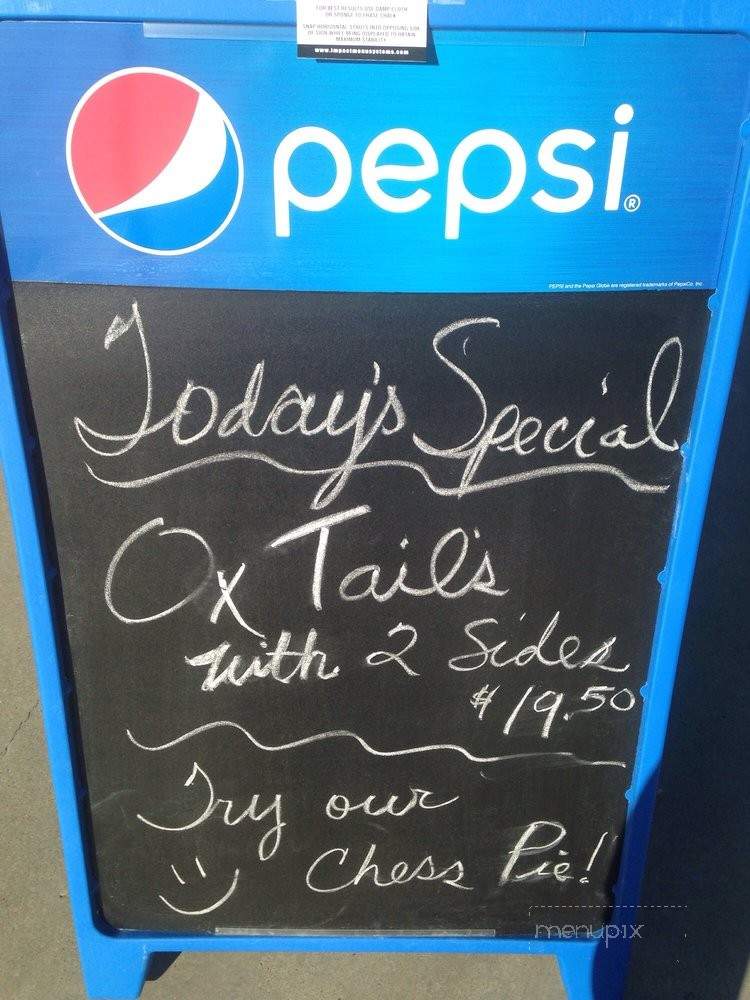 FOR BEST RESULTS USE DAMP CLOTH
OR SPONGE TO ERASE CHALK
SNAP HORIZONTAL STRUTS INTO OPPOSING SIDE
OF SIGN WHILE BEING DISPLAYED TO OBTAIN
MAXIMUM STABILITY
www.impactmenusystems.com
pepsi®
PEPSI and the Pepsi Globe are registered trademarks of PepsiCo, Inc.
Today's Special
Ox Tail's
with 2 Sides
$19.50
Try our
Chess Pie!
menupix